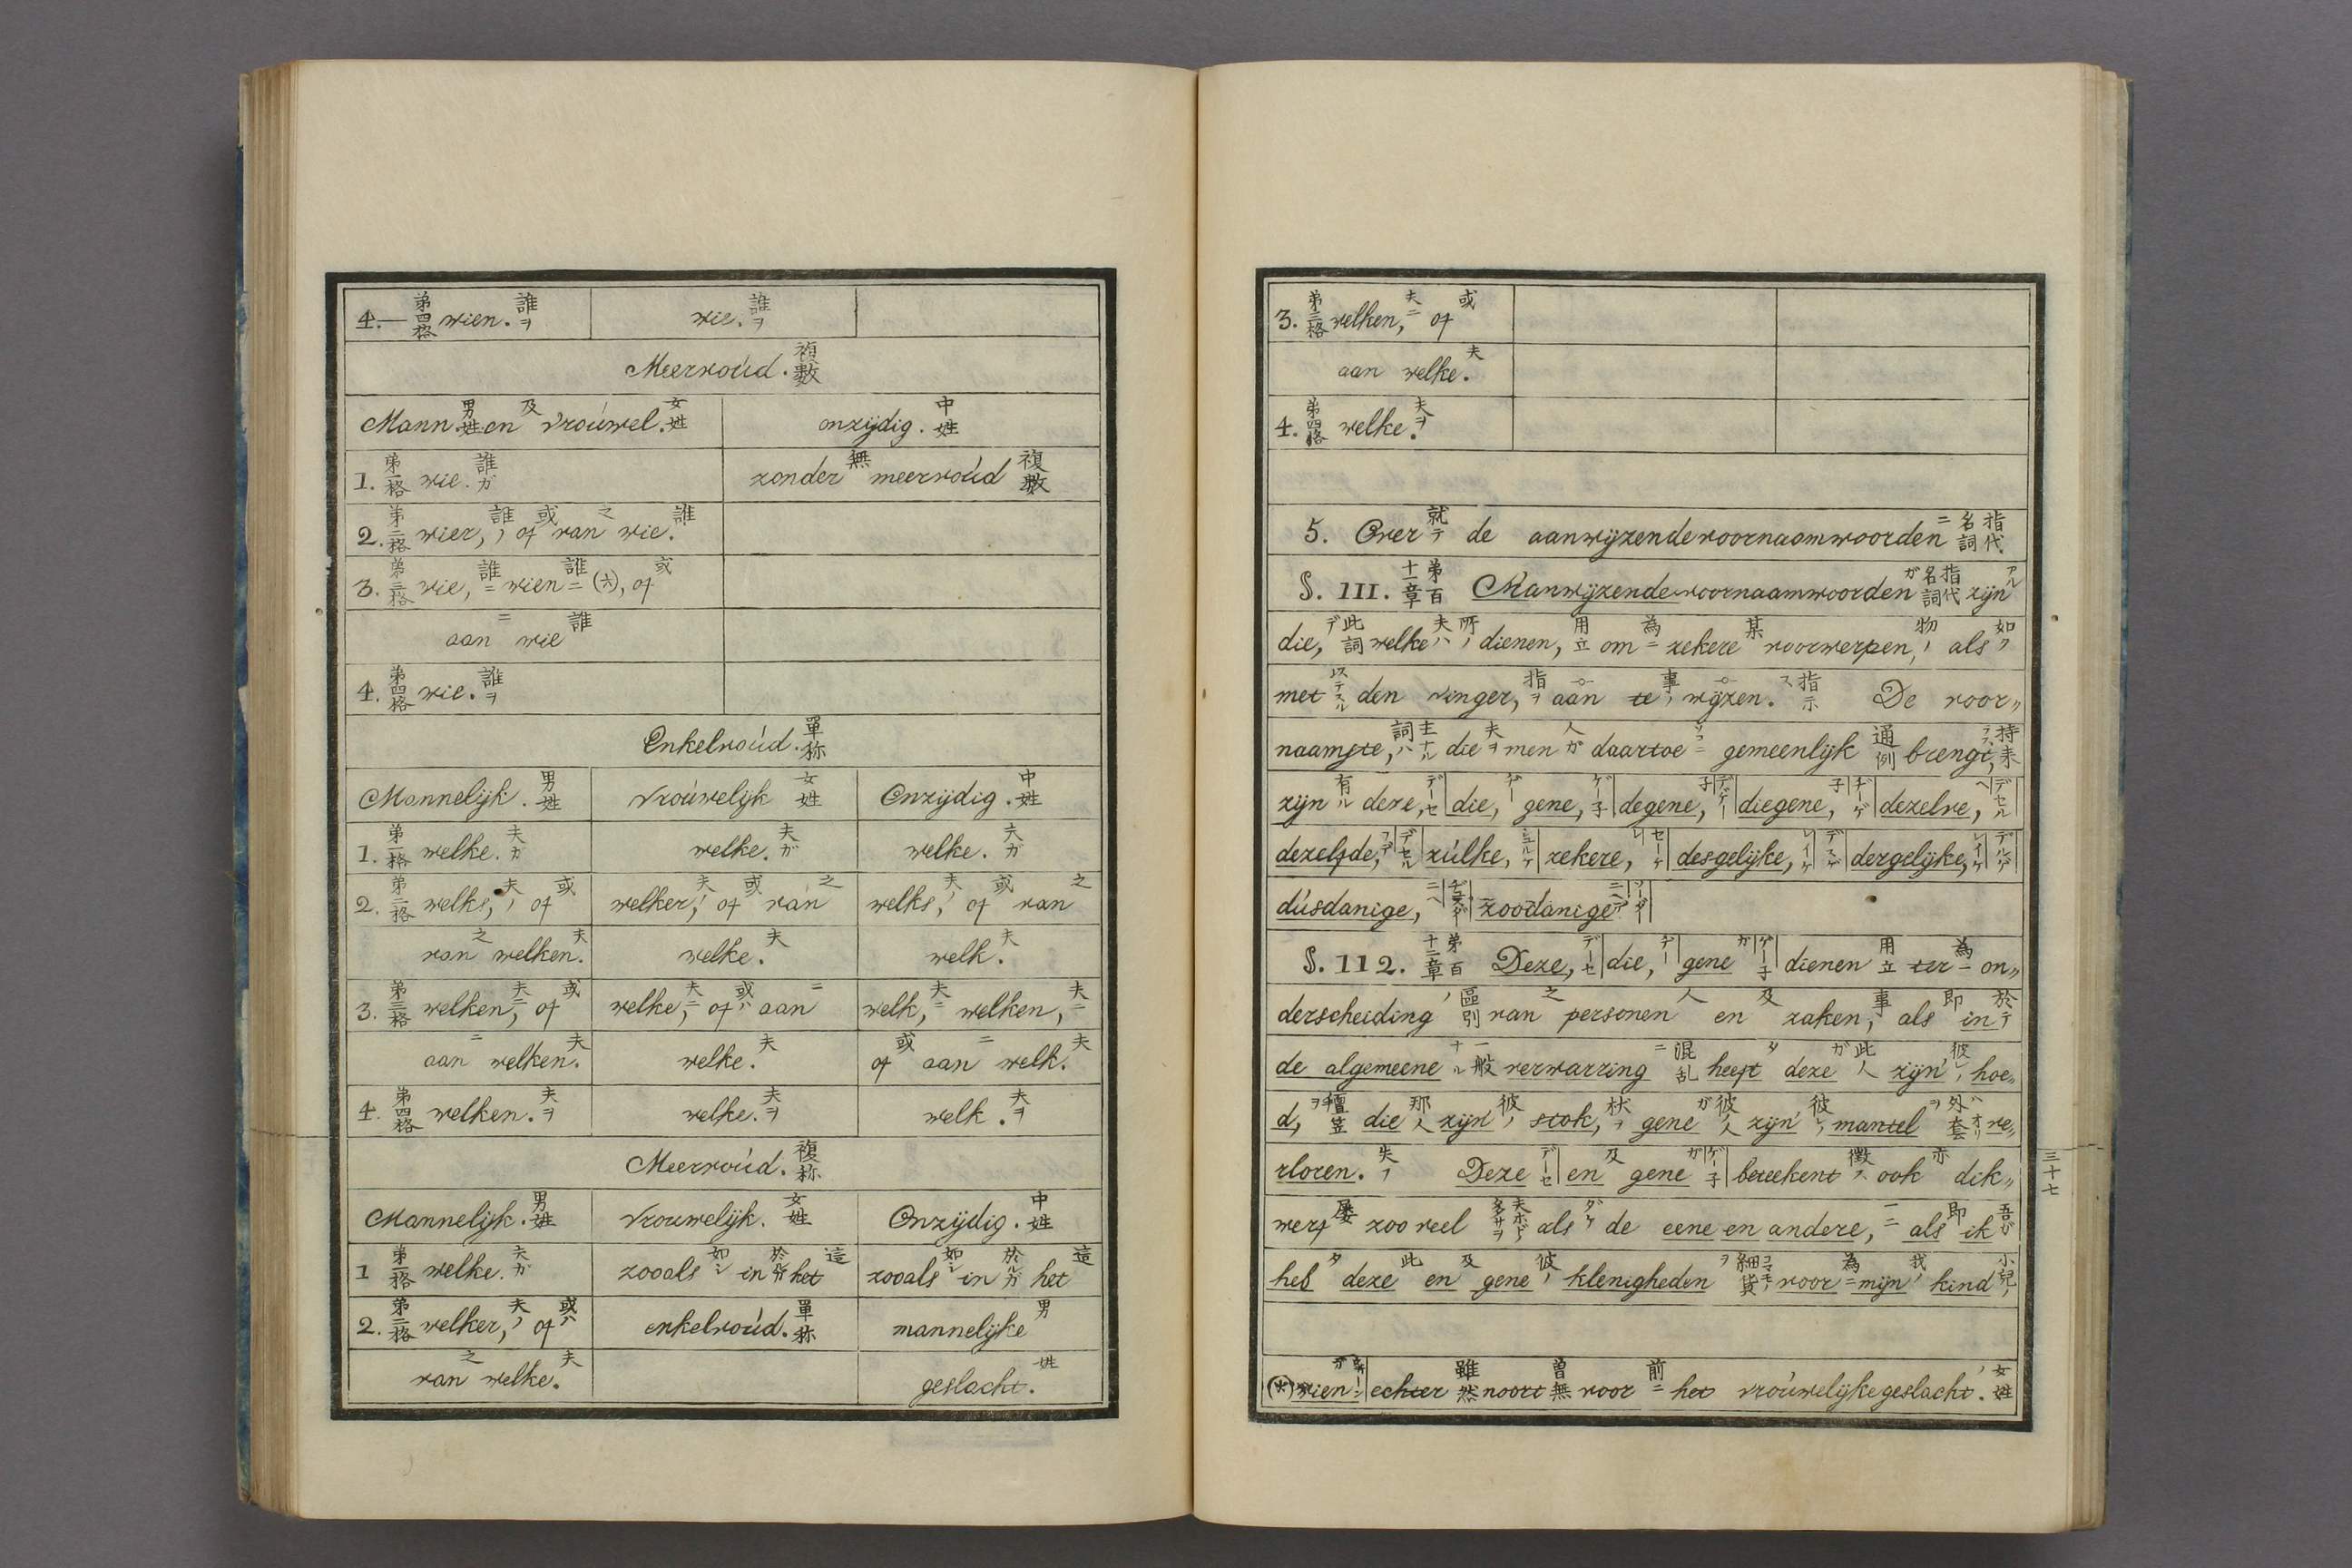 4.— 第四格 wien. 誰ヲ wie. 誰ヲ
Meervoúd. 複數
Mann. 男姓 en 及 vroúwel. 女姓 onzijdig. 中姓
1. 第一格 wie. 誰ガ zonder 無 meervoúd 複數
2. 第二格 wier, 誰ノ of 或 van 之 wie. 誰
3. 第三格 wie, 誰ニ wien 誰ニ (六), of 或
aan ニ wie 誰
4. 第四格 wie. 誰ヲ
Enkelvoúd. 單称
Mannelijk. 男姓 vroúwelijk 女姓 Onzijdig. 中姓
1. 第一格 welke. 夫ガ welke. 夫ガ welke. 夫ガ
2. 第二格 welks, 夫ノ of 或 welker, 夫ノ of 或 van 之 welks, 夫ノ of 或 van 之
van 之 welken. 夫 welke. 夫 welk. 夫
3. 第三格 welken, 夫ニ of 或 welke, 夫ニ of 或ハ aan ニ welk, 夫ニ welken, 夫ニ
aan ニ welken. 夫 welke. 夫 of 或 aan ニ welk. 夫
4. 第四格 welken. 夫ヲ welke. 夫ヲ welk. 夫ヲ
Meervoúd. 複称
Mannelijk. 男姓 Vrouwelijk. 女姓 Onzijdig. 中姓
1 第一格 welke. 夫ガ zooals 如シ in 於ルガ het 這 zooals 如シ in 於ルガ het 這
2. 第二格 welker, 夫ノ of 或ハ enkelvoúd. 單称 mannelijke 男
van 之 welke. 夫 geslacht. 姓
3. 第三格 welken, 夫ニ of 或
aan welke. 夫
4. 第四格 welke. 夫ヲ
5. Over 就テ de aanwijzende voornaamwoorden 指代名詞ニ
§. 111. 第百十一章 Aanwijzende voornaamwoorden 指代名詞ガ zijn アル
die, 此詞デ welke 夫ハ 所ノ dienen, 用立 om 為ニ zekere 某 voorwerpen, 物ノ als 如ク
met 以テスル den vinger, 指ヲ aan te 事ノ wijzen. 指示ス De voor〃
naamste, 主ナル詞ハ die 夫ヲ men 人ガ daartoe ソコニ gemeenlijk 通例 brengt, 持来
zijn 有ル deze, デーセ die, デー gene, ゲー子 degene, デゲー子 diegene, ヂーゲ子 dezelve, デセルヘ
dezelfde, デセルフデ zúlke, シュルケ zekere, セーケレ desgelijke, デスゲレイケ dergelijke, デルゲレイケ
dúsdanige, zoodanige
§. 112. 第百十二章 Deze, デーセ die, ヂー gene ゲー子ガ dienen 用立 ter 為ニ on〃
derscheiding 區別ノ van 之 personen 人 en 及 zaken, 事ノ als 即 in 於テ
de algemeene 一般ナル verwarring 混乱ニ heeft タ deze 此人ガ zijn 彼レノ hoe〃
d, 笠ヲ die 那人 zijn 彼ノ stok, 杖ヲ gene 彼人ガ zijn 彼レノ mantel 外套ヲ ve〃
rloren. 失フ Deze デーセ en 及 gene ゲー子ガ beteekent 徴ス ook 亦 dik〃
werf 屡 zoo veel 夫ホド多サヲ als ダケ de eene en andere, 一二 als 即 ik 吾ガ
heb タ deze 此 en 及 gene 彼ノ klenigheden 細貨ヲ voor 為ニ mijn 我ノ kind 小兒ノ
(六) wien echter 雖然 noort 曽無 voor 前ニ het vroúwelijke geslacht. 女姓ノ
三十七